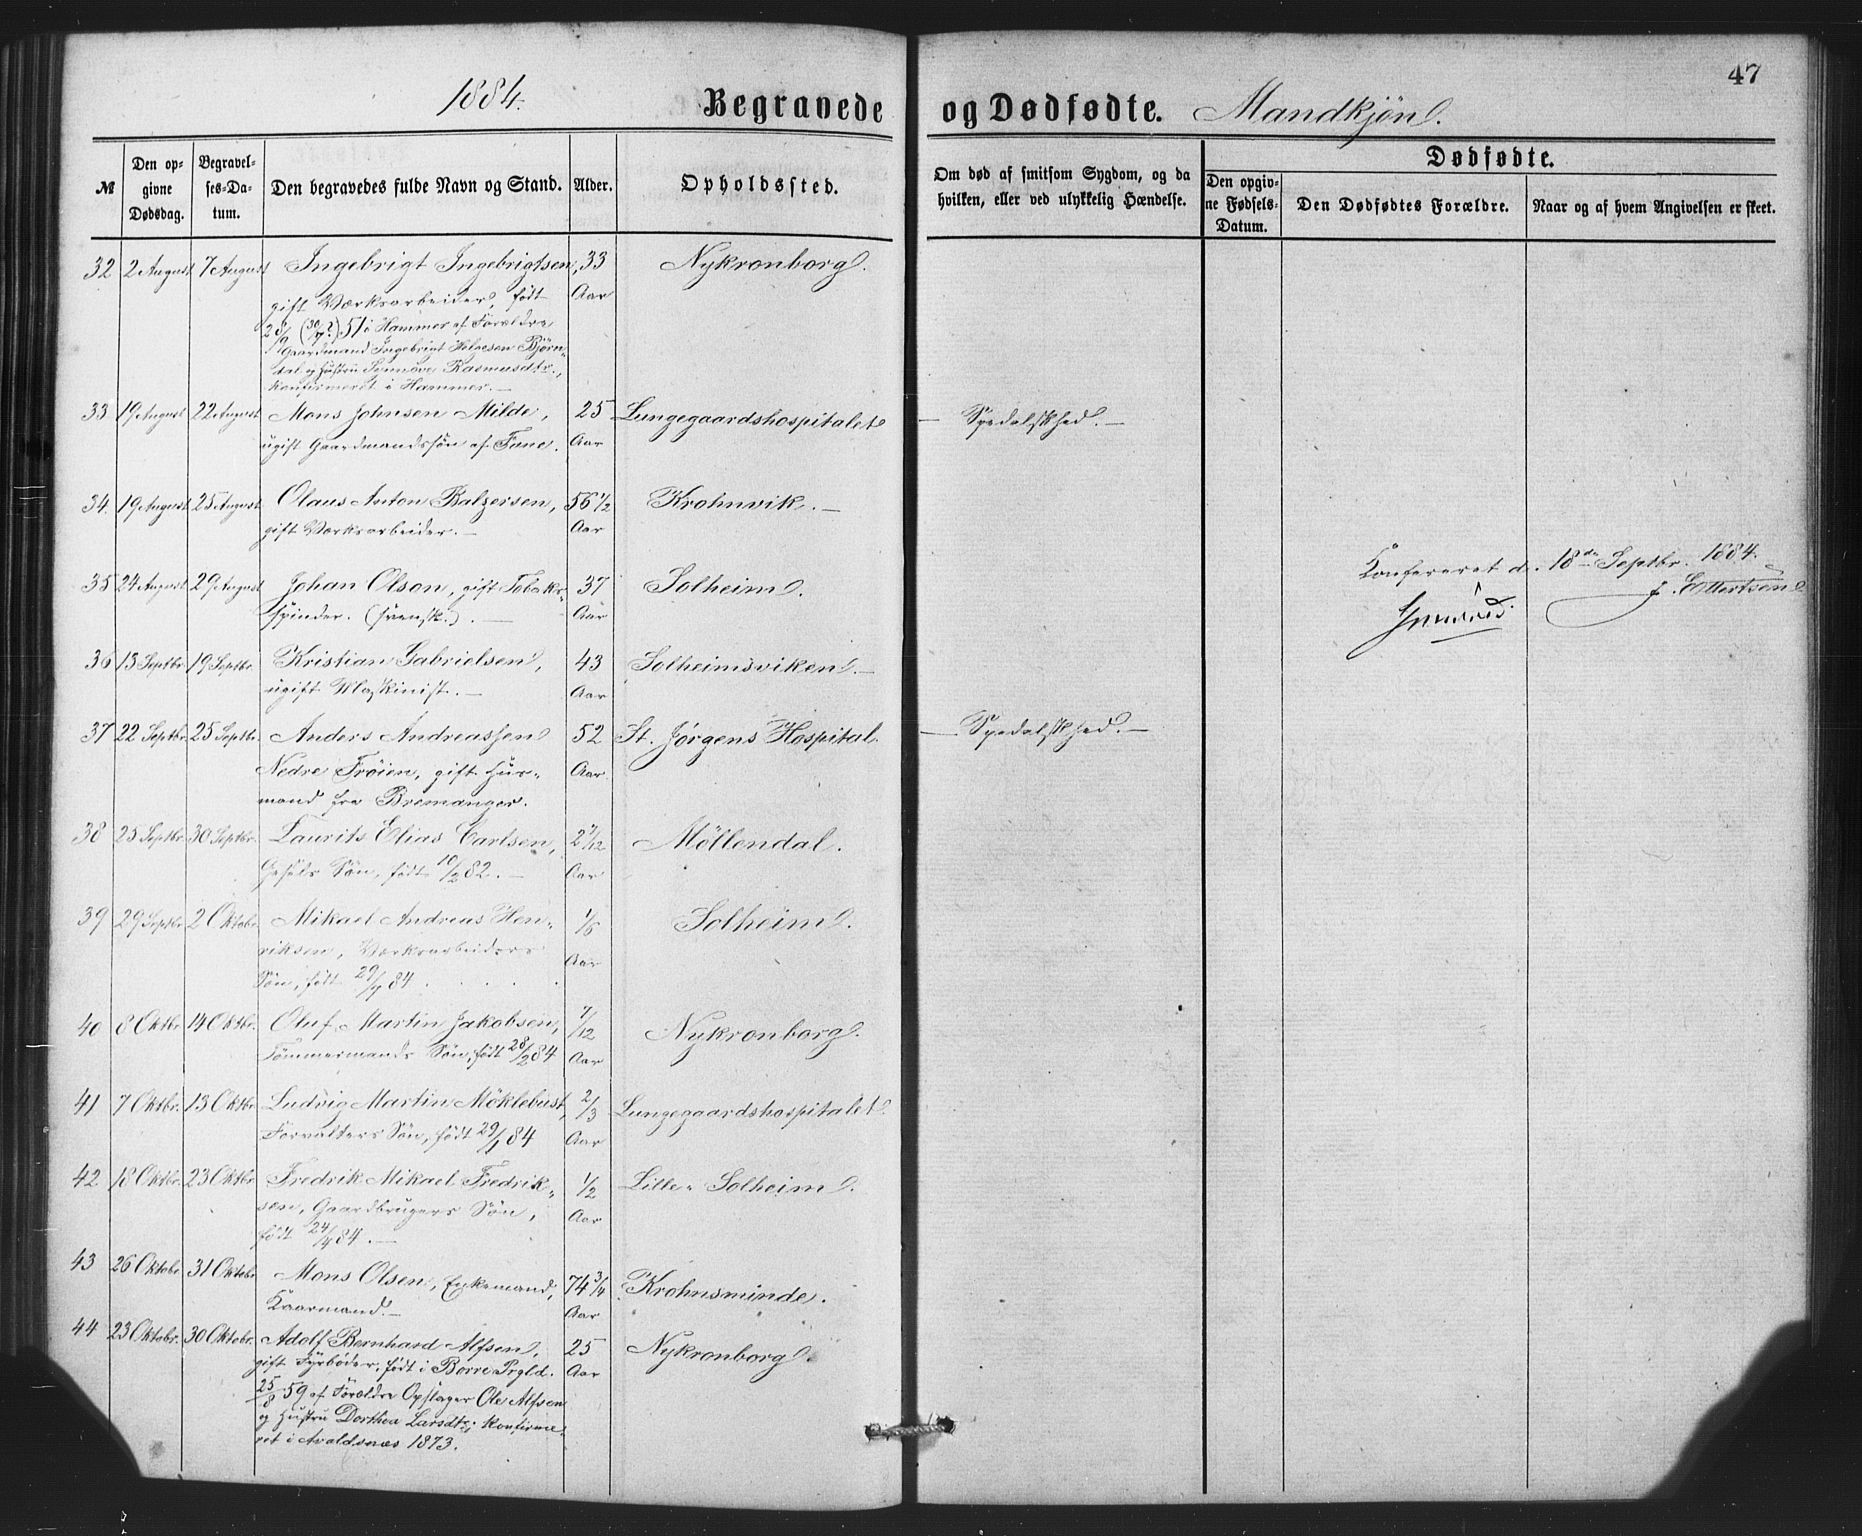 47
1884. Begravede og Dødfødte. Mandkjøn.
№
Den opgivne Dødsdag.
Begravelses-Datum.
Den begravedes fulde Navn og Stand.
Alder.
Opholdssted.
Om død af smitsom Sygdom, og da hvilken, eller ved ulykkelig Hændelse.
Dødfødte.
Den opgivne Fødsels-Datum.
Den Dødfødtes Forældre.
Naar og af hvem Angivelsen er skeet.
32 2 August 7 August Ingebrigt Ingebrigtsen, 33 Aar Nykronborg.
gift Værksarbeider, født
28/9 (30/7?) 51 i Hammer af Forældre
Gaardmand Ingebrigt Helgesen Bjørn-
dal og Hustru Synnöve Rasmusdtr.,
konfirmeret i Hammer. —
33 19 August 22 August Mons Johnsen Milde, 25 Aar Lungegaardshospitalet — Spedalskhed. —
ugift Gaardmandssøn af Fane.
34. 19 August 25 August Olaus Anton Balzersen, 56 1/2 Aar Krohnvik. —
gift Værksarbeider. —
35 24 August 29 August Johan Olson, gift Tobaks- 37 Aar Solheim.
spinder. (svensk.). —
Konfereret d. 18de Septbr. 1884.
J. Ellertsen
36 13 Septbr. 19 Septbr. Kristian Gabrielsen, 43 Aar Solheimsviken. —
ugift Maskinist. —
37 22 Septbr. 25 Septbr. Anders Andreassen 52 Aar St. Jørgens Hospital. — Spedalskhed. —
Nedre Fröien, gift Hus-
mand fra Bremanger.
38 25 Septbr. 30 Septbr. Laurits Elias Carlsen, 2 7/12 Aar Möllendal.
Gesels Sön, födt 10/2 82. —
39 29 Septbr. 2 Oktobr. Mikael Andreas Hen- 1/6 Aar Solheim.
riksen, Værksarbeiders
Sön, födt 29/7 84
40 8 Oktbr. 14 Oktbr. Oluf Martin Jakobsen, 7/12 Aar Nykronborg.
Tömmermands Sön, födt 28/2 84
41 7 Oktbr. 13 Oktbr. Ludvig Martin Möklebust, 2/3 Aar Lungegaardshospitalet.
Forvalters Sön, födt 29/1 84
42 18 Oktbr. 23 Oktbr. Fredrik Mikael Fredrik- 1/2 Aar Lille-Solheim.
sen, Gaardbrugers Sön,
födt 24/4 84. —
43 26 Oktobr. 31 Oktobr. Mons Olsen, Enkemand, 74 3/4 Aar Krohnsminde.
Kaarmand. —
44 23 Oktobr. 30 Oktobr. Adolf Bernhard Alfsen, 25 Aar Nykronborg.
gift Fyrböder, födt i Borre Prgld.
25/8 59 af Forældre Opslager Ole Alfsen
og Hustru Dorthea Larsdtr; konfirme-
ret i Avaldsnæs 1873.